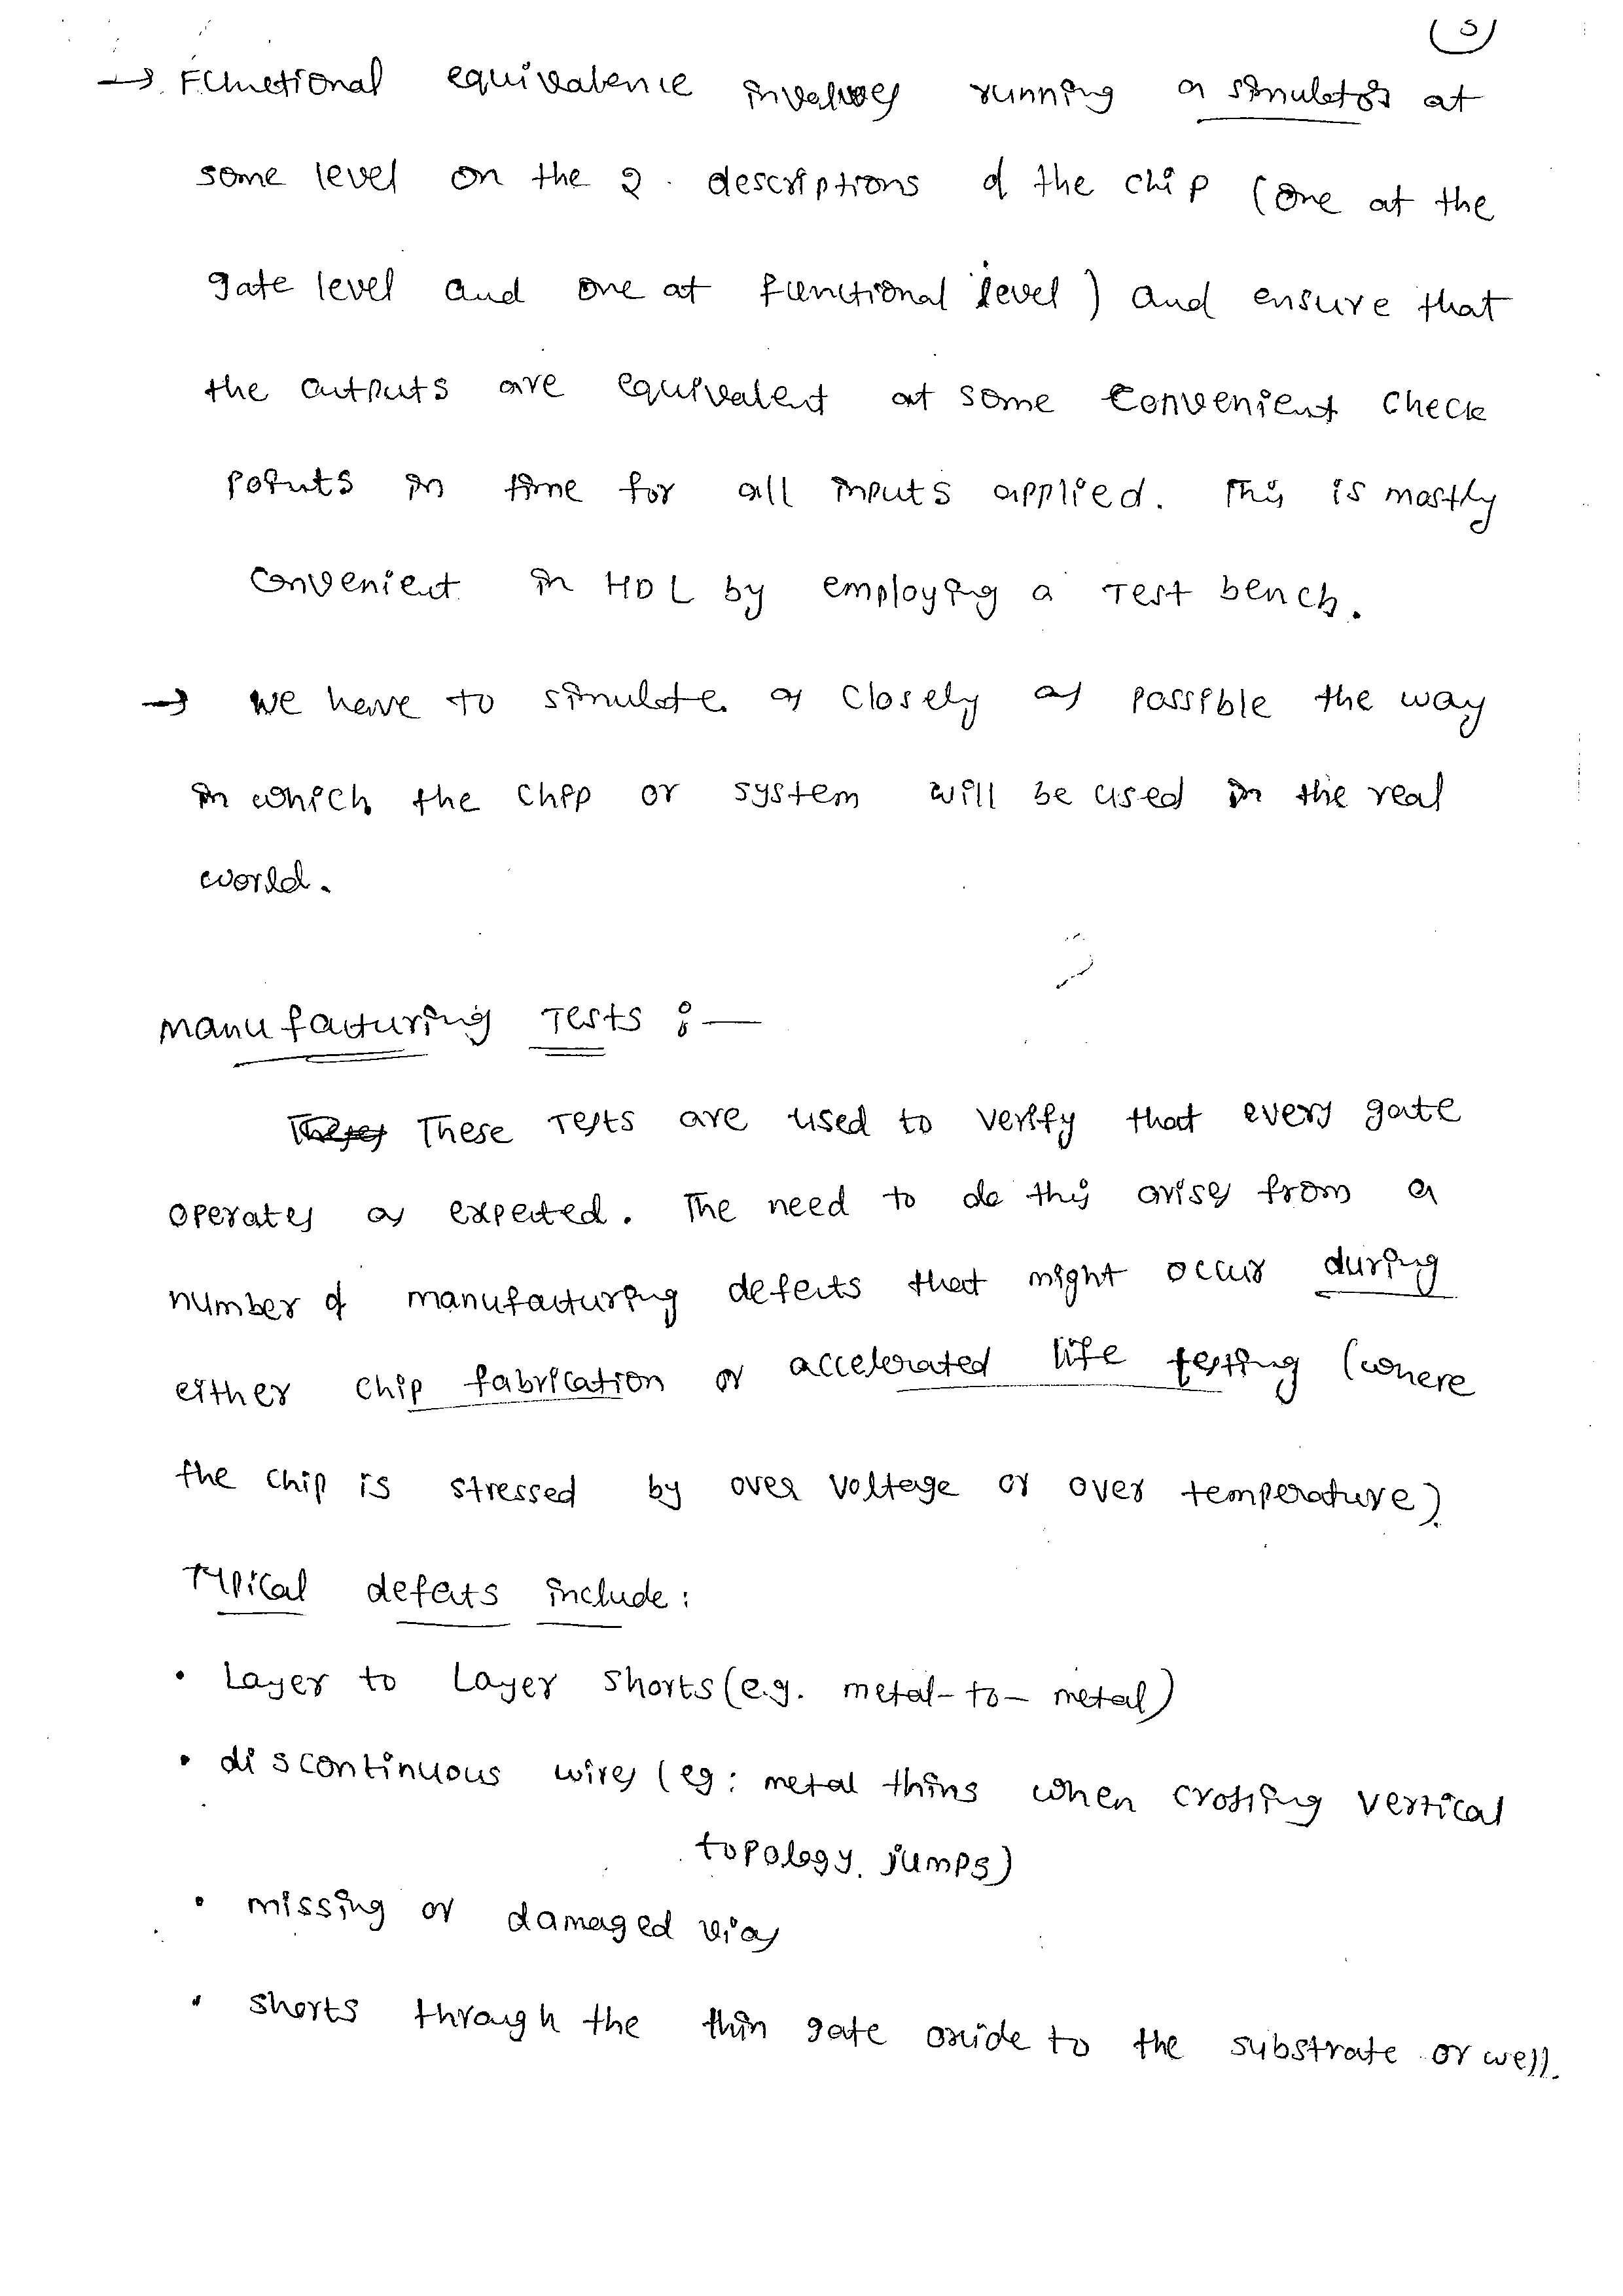 5
→ Functional equivalence involves running a simulator at
some level on the 2 descriptions of the chip (one at the
gate level and one at functional level) and ensure that
the outputs are equivalent at some convenient check
points in time for all inputs applied. This is mostly
convenient in HDL by employing a Test bench.
→ we have to simulate as closely as possible the way
in which the chip or system will be used in the real
world.
Manufacturing Tests :-
These These Tests are used to verify that every gate
operates as expected. The need to do this arises from a
number of manufacturing defects that might occur during
either chip fabrication or accelerated life testing (where
the chip is stressed by over voltage or over temperature).
Typical defects include:
• Layer to Layer shorts (e.g. metal-to-metal)
• discontinuous wires (eg: metal thins when crossing vertical
topology jumps)
• missing or damaged vias
• shorts through the thin gate oxide to the substrate or well.